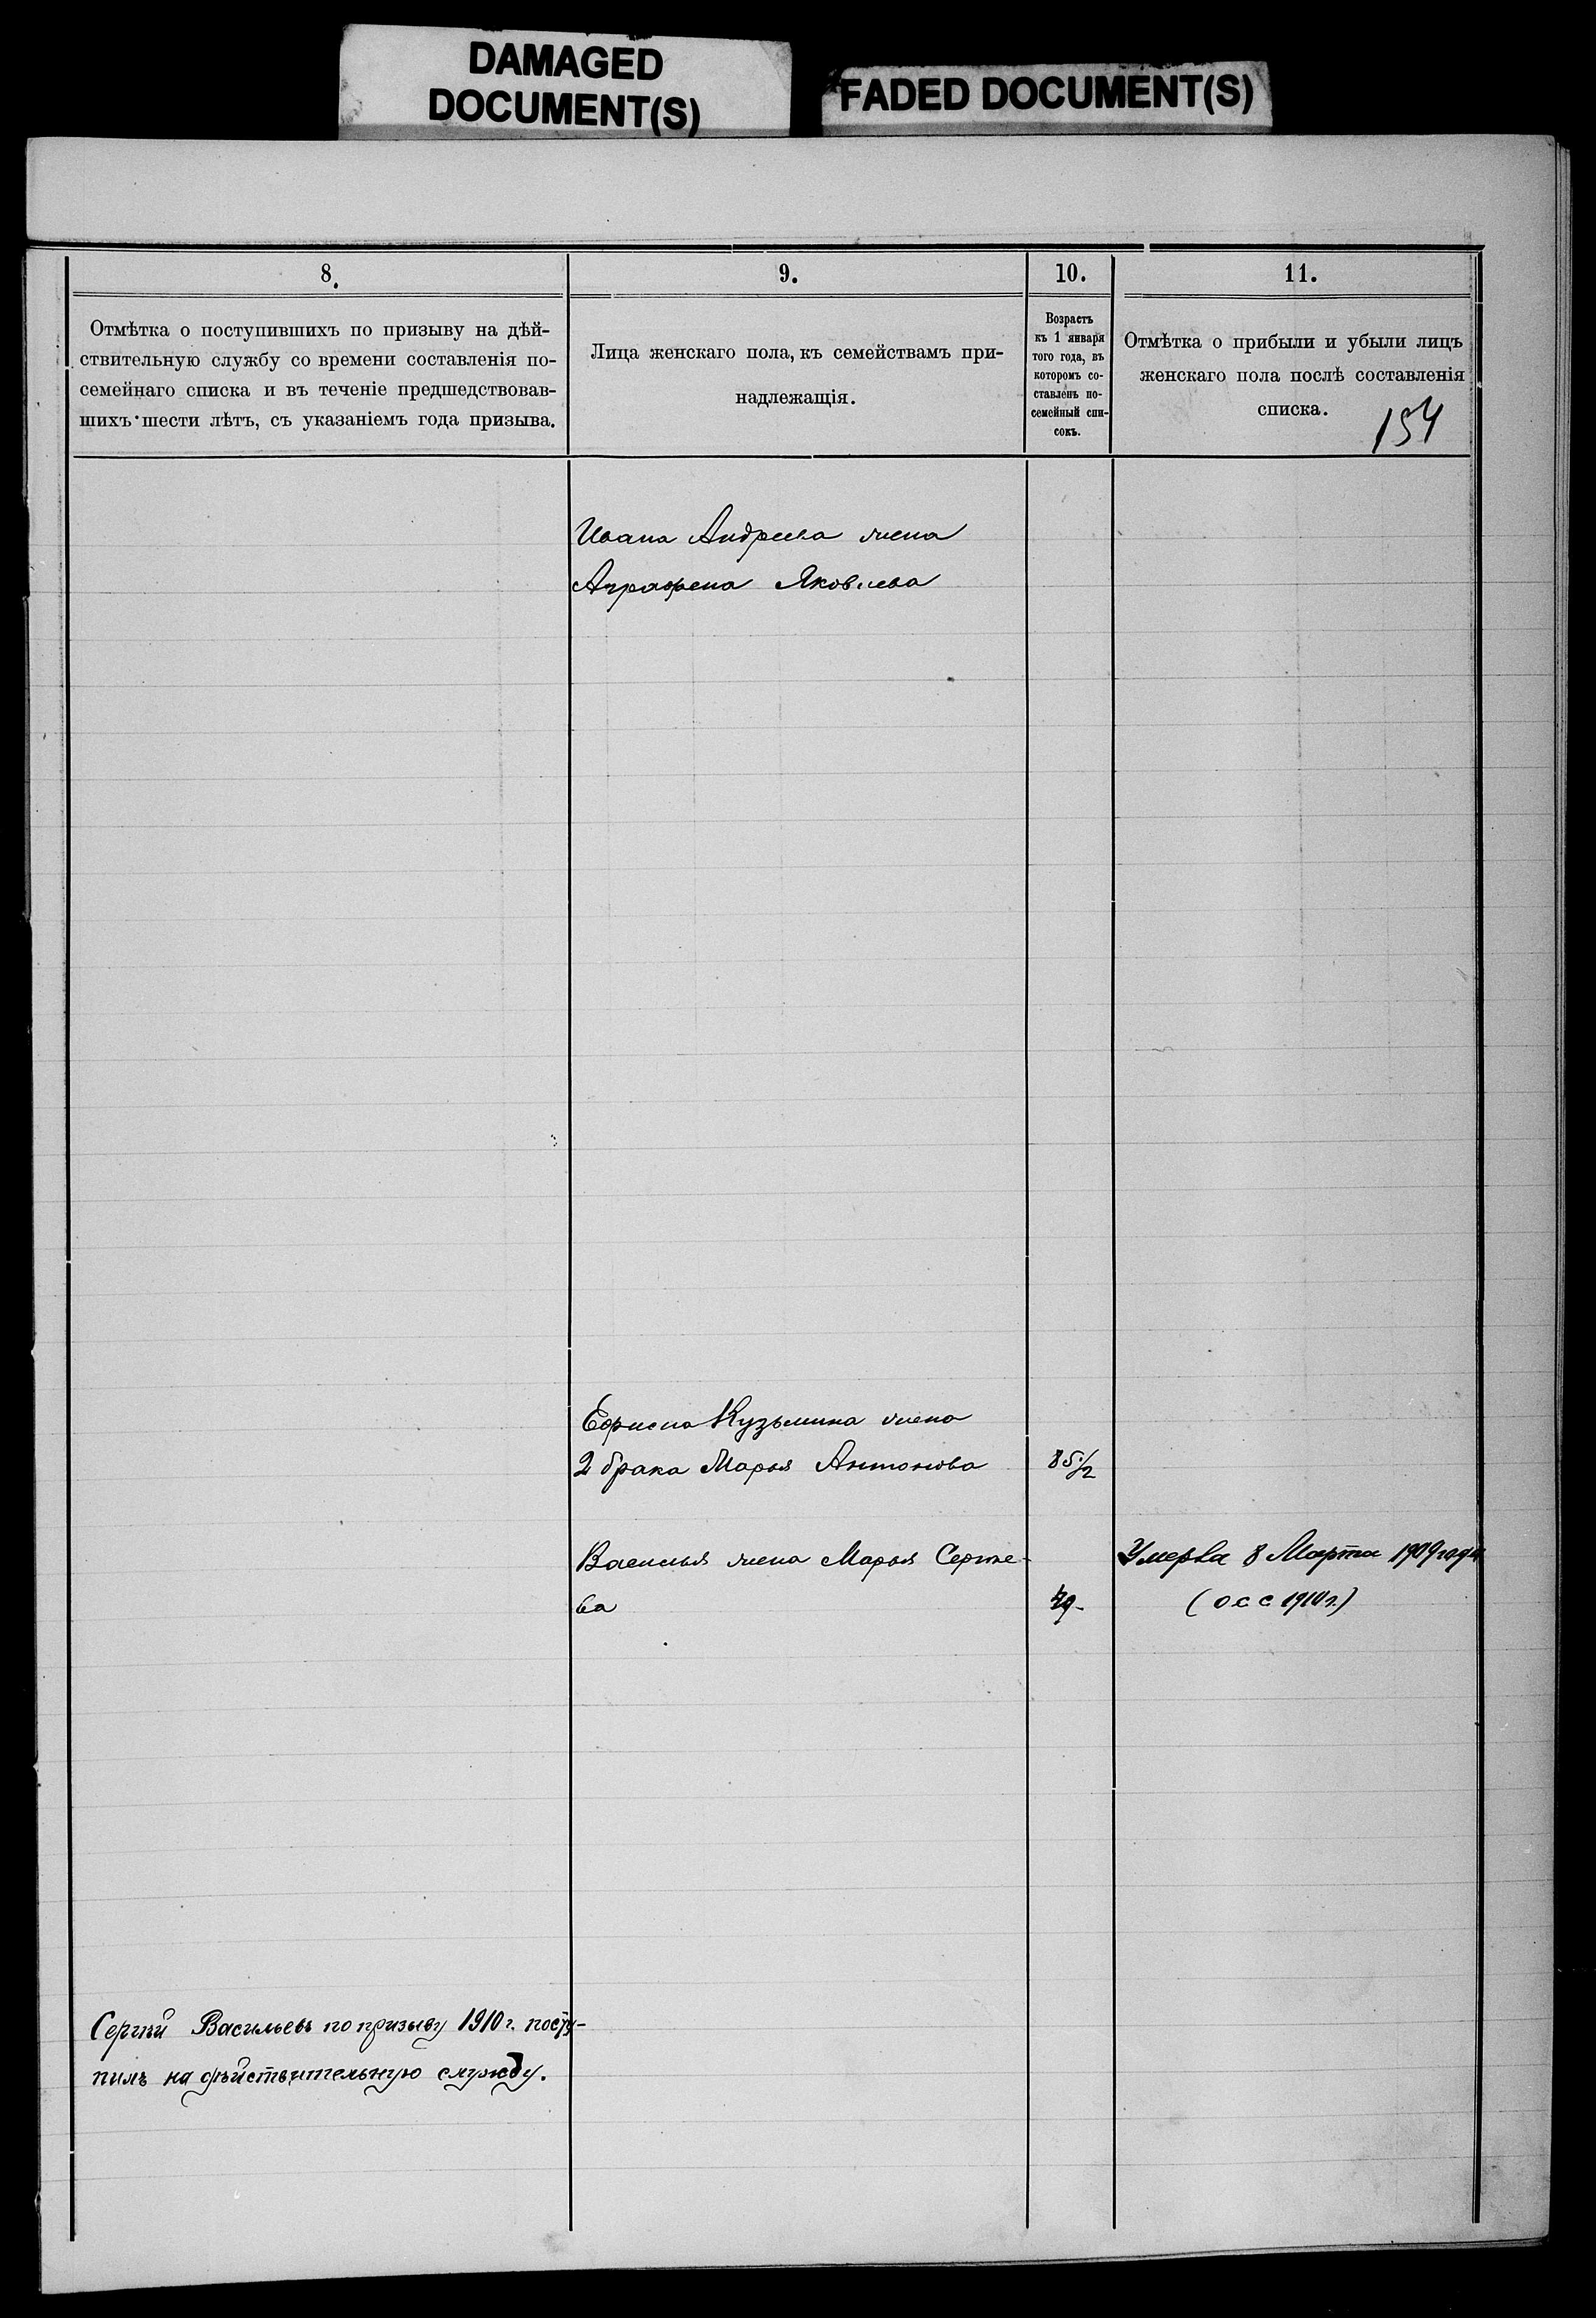 DAMAGED
DOCUMENT(S)
FADED DOCUMENT(S)
8.
Отмѣтка о поступившихъ по призыву на дѣй-
ствительную службу со времени составленія по-
семейнаго списка и въ теченіе предшедствовав-
шихъ шести лѣтъ, съ указаніемъ года призыва.
9.
Лица женскаго пола, къ семействамъ при-
надлежащія.
10.
Возрастъ
къ 1 января
того года, въ
которомъ со-
ставленъ по-
семейный спи-
сокъ.
11.
Отмѣтка о прибыли и убыли лицъ
женскаго пола послѣ составленія
списка.
154
Ивана Андреева жена
Аграфена Яковлева
Ефима Кузьмина жена
2 брака Марья Антонова 85 1/2
Василья жена Марья Сергѣе-
ва 49
Умерла 8 Марта 1909 года
(о с с 1910 г.)
Сергѣй Васильевъ по призыву 1910 г. посту-
пилъ на дѣйствительную службу.